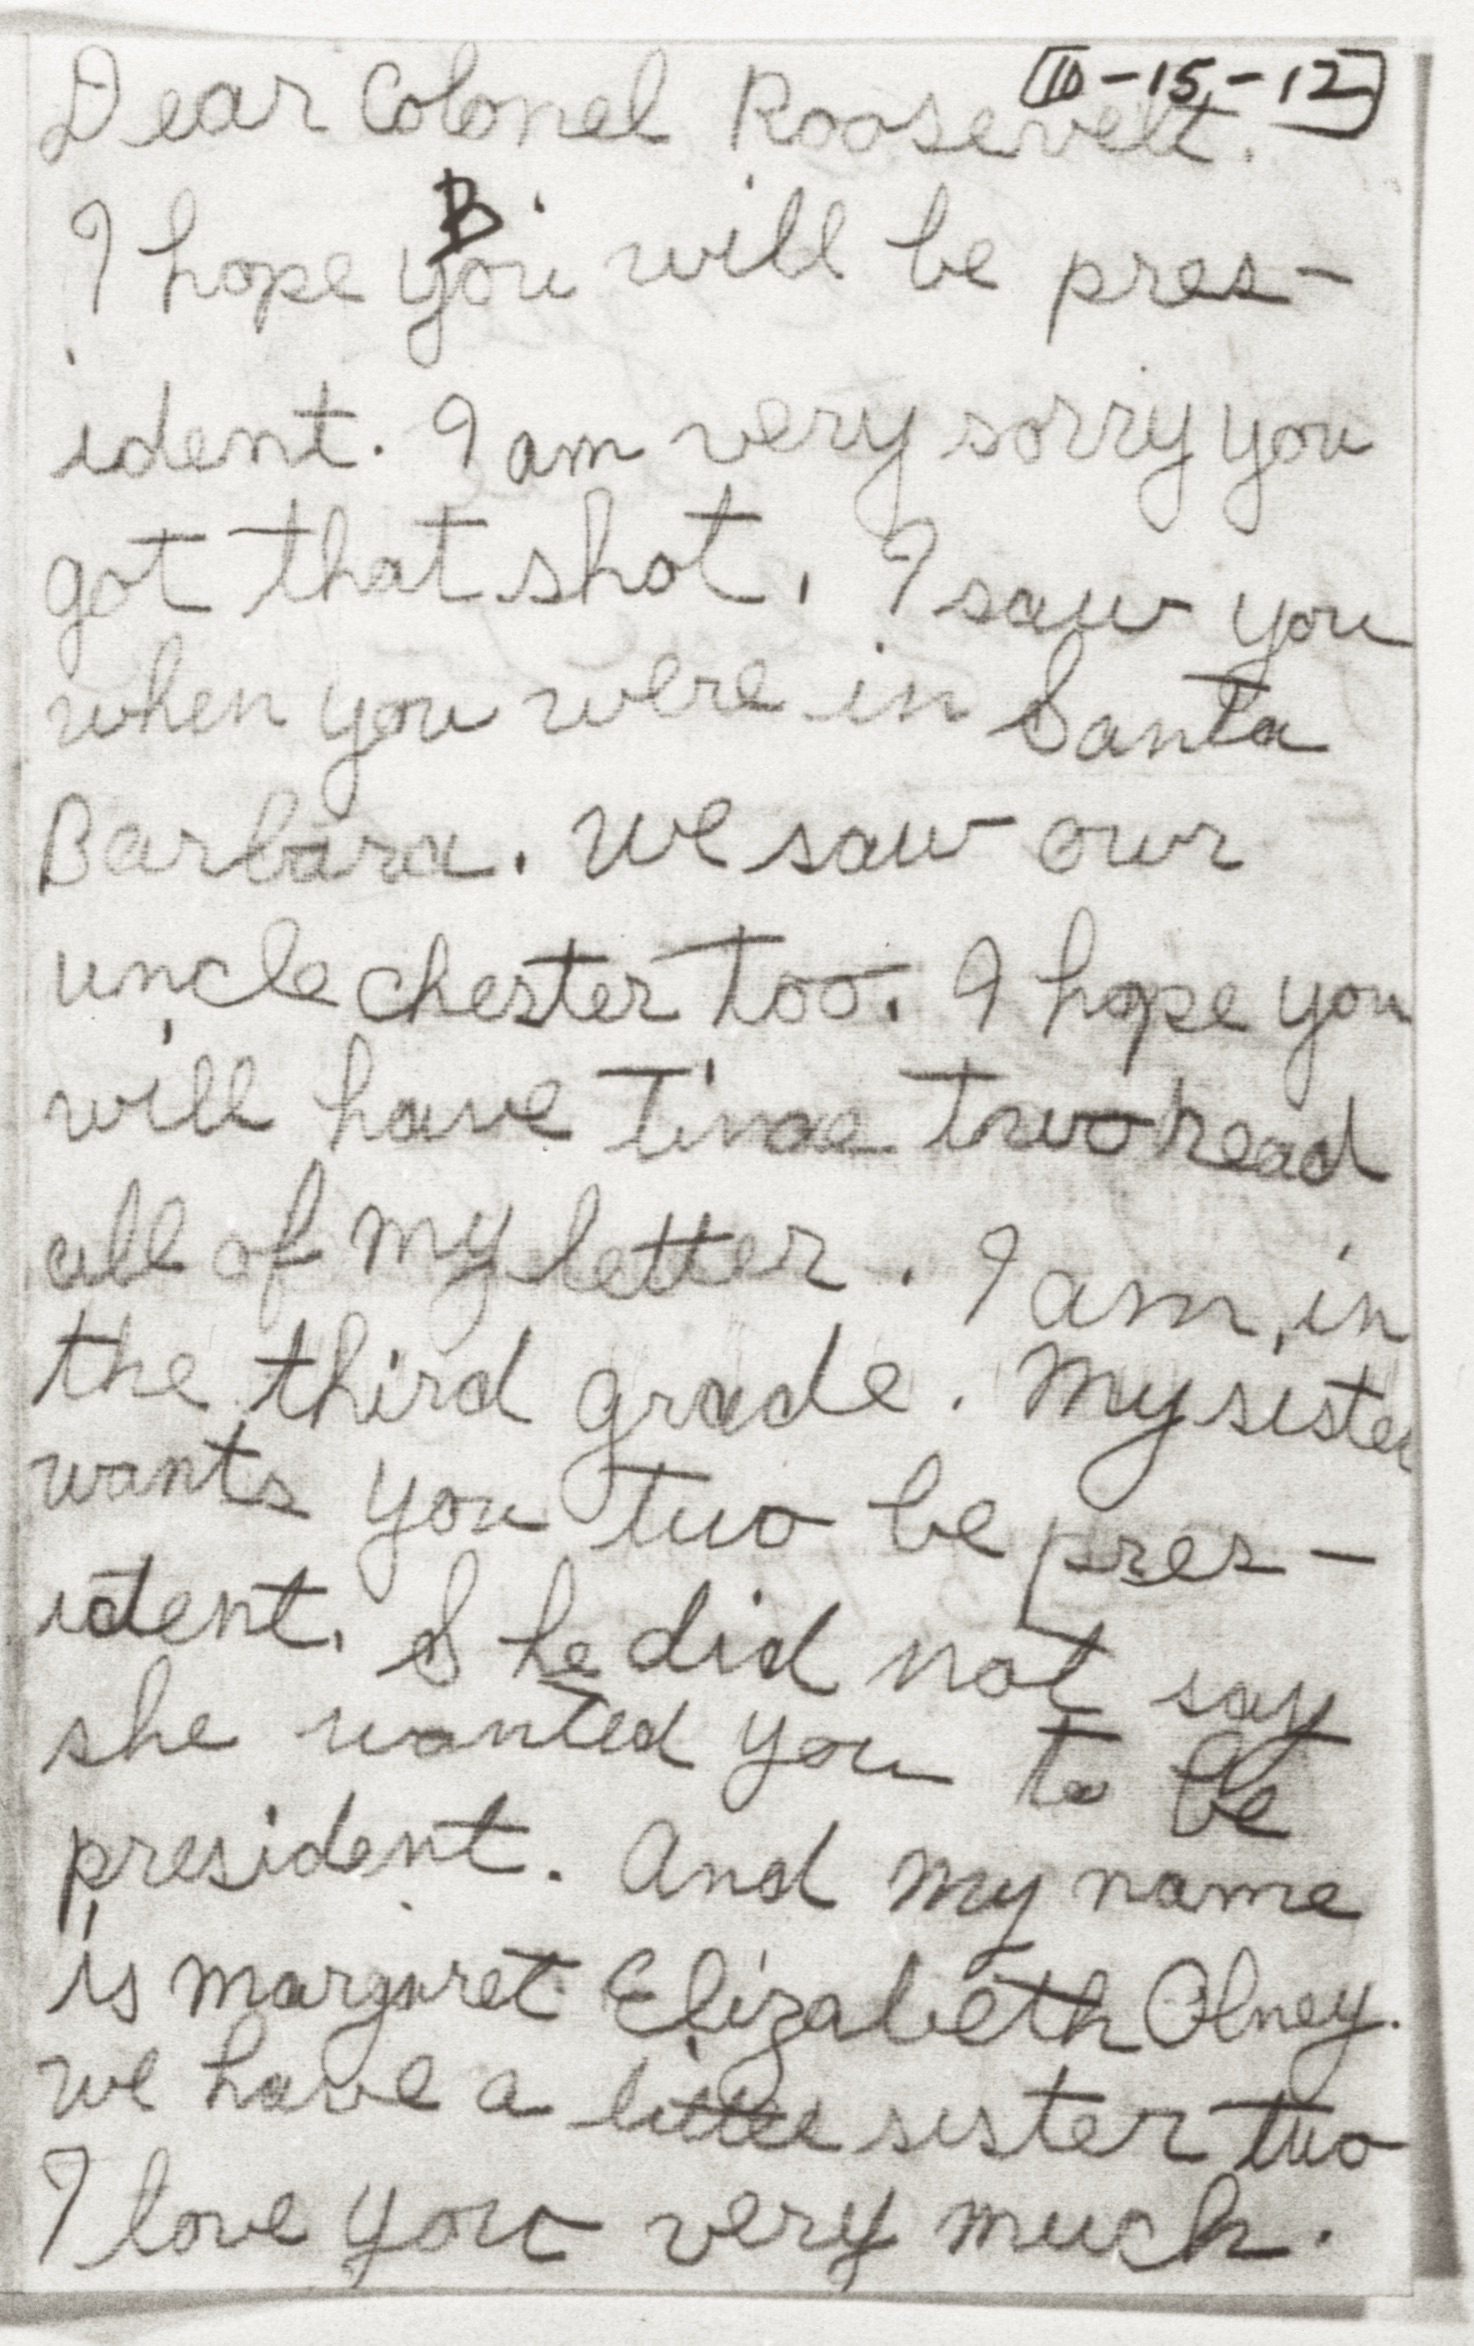 [10-15-12]
Dear Colonel Roosevelt.
B
I hope you will be pres-
ident. I am very sorry you
got that shot. I saw you
when you were in Santa
Barbara. we saw our
uncle chester too. I hope you
will have time two read
all of my letter. I am in
the third grade. My sister
wants you two be pres-
ident. She did not say
she wanted you to be
president. And my name
is margaret Elizabeth Olney.
we have a little sister two
I love you very much.